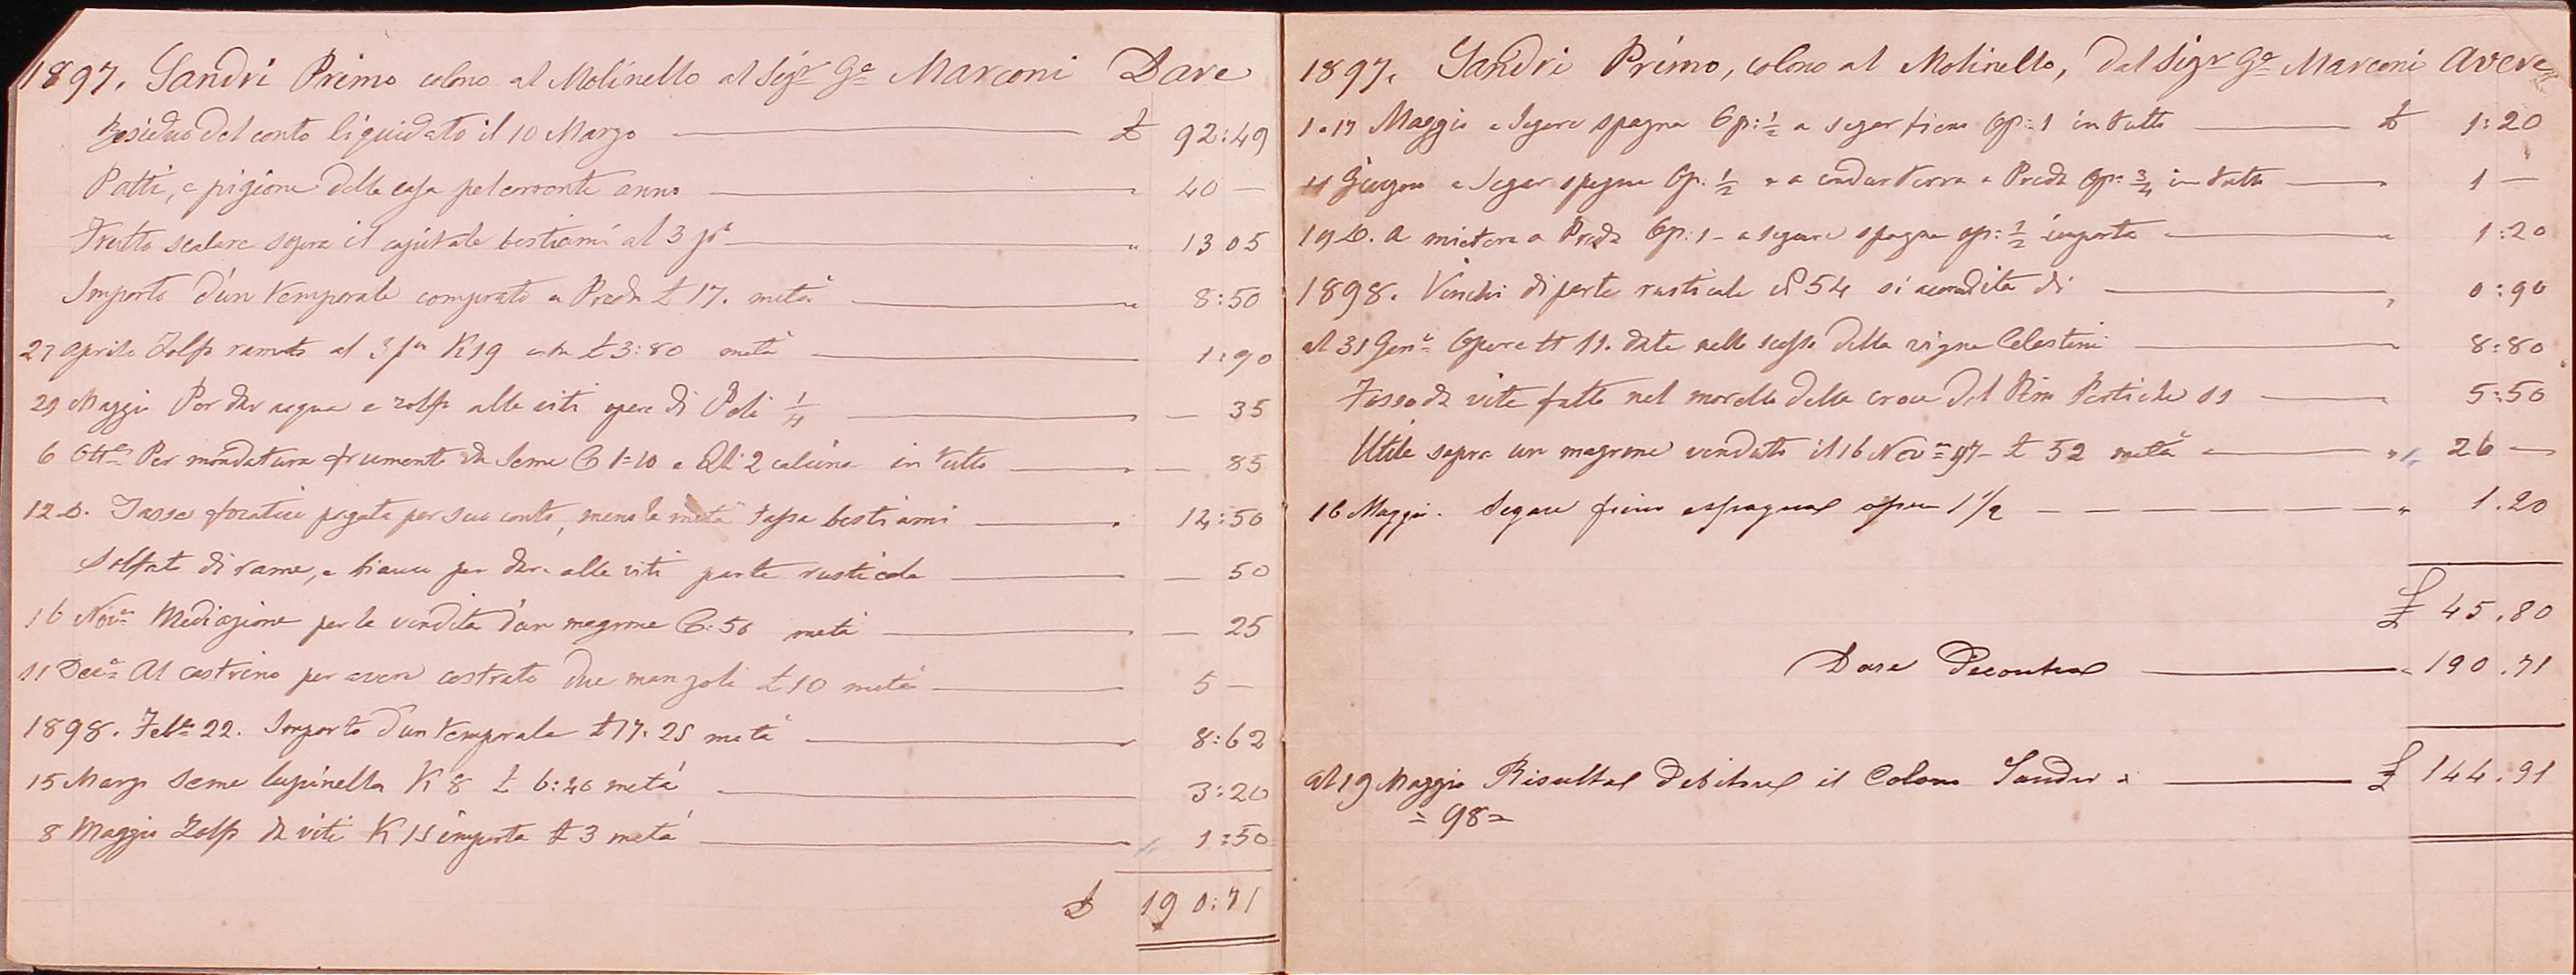 1897. Sandri Primo colono al Molinello al Sigr Ge Marconi Dare
Residuo del conto liquidato il 10 Marzo £ 92:49
Patti, e pigione della casa pel corrente anno " 40 —
Frutto scalare sopra il capitale bestiami al 3 p% " 13 05
Importo d'un temporale comprato a Preda £ 17. metà " 8:50
27 Aprile Zolfo ramato al 3 p% K 19 £ 3:80 metà 1:90
29 Maggio Per dar acqua e zolfo alle viti opere di Poli 1/4 — 35
6 Ottre Per mondatura frumento da seme C 1=10 e Ql: 2 calcina in tutto — 85
12 D. Tasse focatico pagate per suo conto, meno la metà tassa bestiami 12:50
Solfato di rame, e per dare alle viti parte rusticale — 50
16 Nove Mediazione per la vendita d'un magrone C:50 metà — 25
11 Dece Al castrino per avere castrato due manzoli £ 10 metà 5 —
1898. Febo 22. Importo d'un temporale £ 17.25 metà 8:62
15 Marzo Seme lupinella K 8 £ 6:40 metà 3:20
8 Maggio Zolfo da viti K 15 importa £ 3 metà " 1:50
£ 190:71
1897. Sandri Primo, colono al Molinello, dal Sigr Ge Marconi Avere
1.17 Maggio a Segare spagna Op: 1/2 a segar fieno Op: 1 in tutto £ 1:20
11 Giugno a Segar spagna Op. 1/2 e a condur terra a Preda Op: 3/4 in tutto " 1 —
19 D. A mietere a Preda Op: 1 — a segare spagna op: 1/2 importa " 1:20
1898. Vinchi di parte rusticale 54 si accredita di " 0:90
al 31 Gene Opere N 11. date nello scasso della vigna Celestini 8:80
Fosso da vite fatto nel morello della croce del Perticle 11 5:50
Utile sopra un magrone venduto il 16 Nove 97 £ 52 metà " 26 —
16 Maggio. Segare fieno e spagna opere 1 1/2 " 1.20
£ 45.80
Dare Decontra " 190.71
Al 19 Maggio Risulta Debitore il Colono Sandri £ 144.91
= 98 =